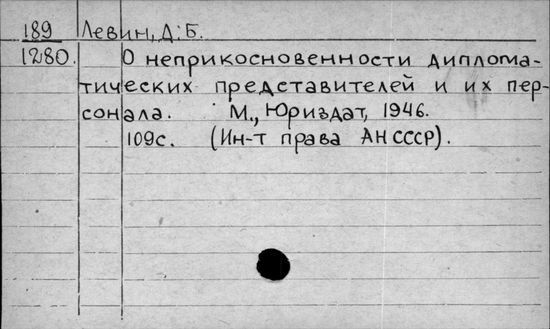 189 Левин, Д. Б.
1280. О неприкосновенности диплома-
тических представителей и их пер-
сонала. М., Юриздат, 1946.
109с. (Ин-т права АН СССР).